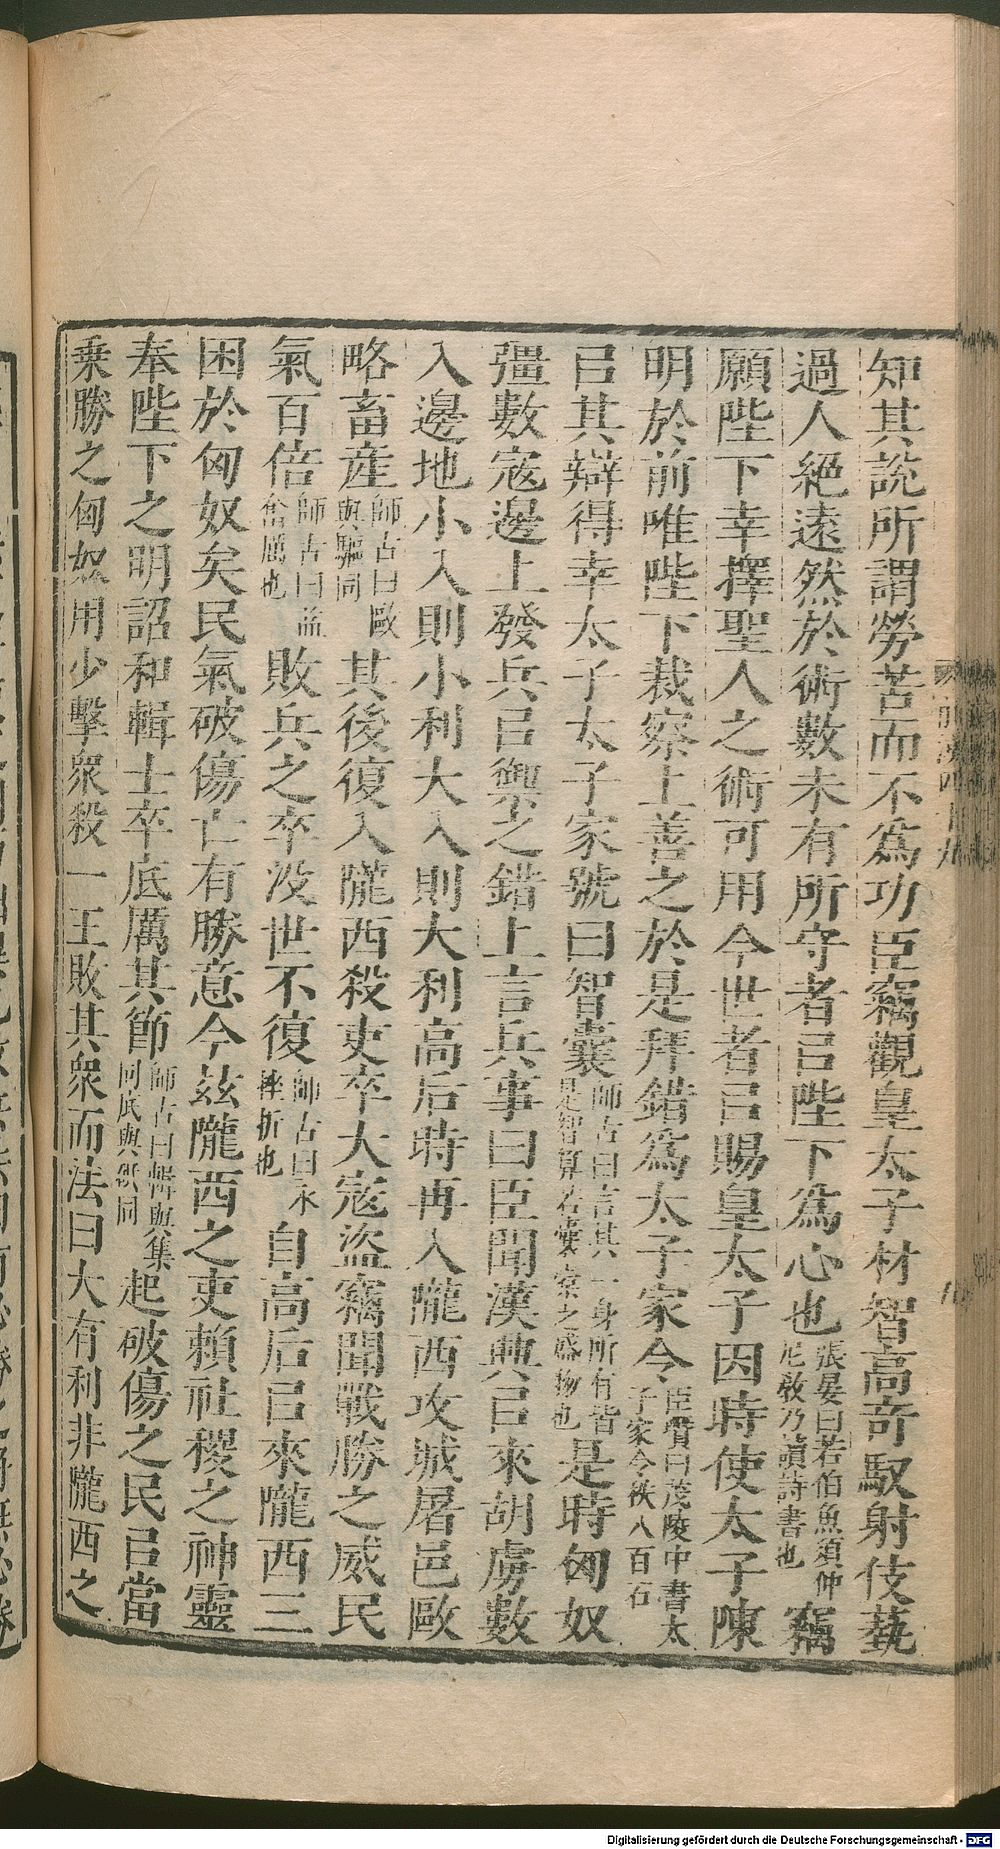 知其說所謂勞苦而不爲功臣竊觀皇太子材智高奇馭射伎藝
過人絕遠然於術數未有所守者㠯陛下爲心也張晏曰若伯魚須仲尼敎乃讀詩書也竊
願陛下幸擇聖人之術可用今世者㠯賜皇太子因時使太子陳
明於前唯陛下裁察上善之於是拜錯爲太子家令臣瓚曰茂陵中書太子家令秩八百石
㠯其辯得幸太子太子家號曰智囊師古曰言其一身所有皆是智算若囊橐之盛物也是時匈奴
彊數寇邊上發兵㠯禦之錯上言兵事曰臣聞漢興㠯來胡虜數
入邊地小入則小利大入則大利高后時再入隴西攻城屠邑敺
略畜產師古曰敺與驅同其後復入隴西殺吏卒大寇盜竊聞戰勝之威民
氣百倍師古曰益奮厲也敗兵之卒沒世不復師古曰永挫折也自高后㠯來隴西三
困於匈奴矣民氣破傷亡有勝意今玆隴西之吏賴社稷之神靈
奉陛下之明詔和輯士卒底厲其節師古曰輯與集同底與砥同起破傷之民㠯當
乗勝之匈奴用少擊衆殺一王敗其衆而法曰大有利非隴西之
Digitalisierung gefördert durch die Deutsche Forschungsgemeinschaft - DFG